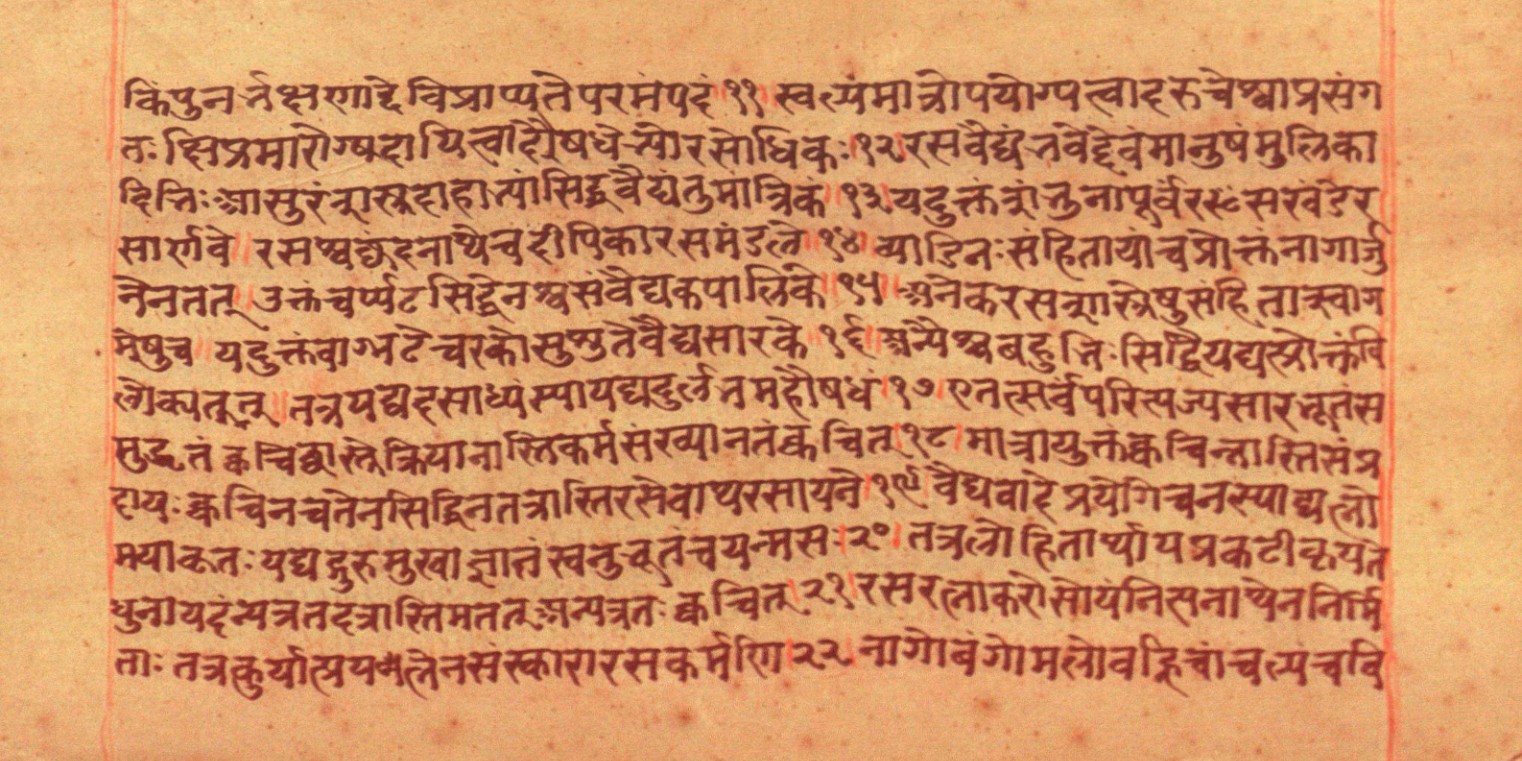 किंपुनर्नक्षणाद्देविप्राप्यतेपरमंपदं ११ स्वल्पंमात्रोपयोग्पत्वाद्दरुचैश्वाप्रसंग
तः क्षिप्रमारोग्पदायित्वादौषधेभ्योरसोधिकः १२ रसवैद्यंनवेद्दैवंमानुषंमुलिका
दिनिः आसुरंशस्त्रदाहाभ्यांसिद्धवैद्यंतुमांत्रिकं १३ यदुक्तंशंनुनापूर्वंरसखंडेर
सार्णवे ॥ रसश्चछ्रदनाथेचदीपिकारसमंडले १४ व्याडिनःसंहितायांचप्रोक्तंनागार्जु
नेनतत् ॥ उक्तंचर्प्पटसिद्धेनश्वसंवैद्यकपालिके १५ अनेकरसशास्त्रेषुसंहितास्वाग
मेषुच ॥ यदुक्तंवाग्भटेचरकोसुश्रुतेवैद्यसारके १६ अन्यैश्चबहुनिःसिद्धैयद्यत्प्रोक्तंवि
लोक्यतत् ॥ तत्रयद्यदसाध्यंस्यायद्यदुर्लनमहौषधं १७ एतत्सर्वंपरित्यज्यसारभूतंस
मुद्धृतं क्वचिछास्त्रेक्रियानास्तिकर्मसंख्यानतंक्वचित् १८ मात्रायुक्तंक्वचिन्नास्तिसंप्र
दायः क्वचिनचतेनसिद्धिनतत्रास्तिरसेवाथरसायने १९ वैद्यवादेप्रयेगेचनस्याद्यत्नो
मयाकृतः यद्यद्गुरुमुखाज्ञातंस्वनुभूतंचयन्मसः २० तत्रलोहितार्थायप्रकटीकृयते
धुनायदंन्यत्रतदत्रास्तिमतत्अन्यत्रतःक्वचित् २१ रसरत्नाकरोसोयंनित्यनाथेननिर्मि
ताः तत्रकुर्यात्प्रयत्नेनसंस्कारारसकर्मणि २२ नागोबंगोमलोवह्निचांचल्यंचवि